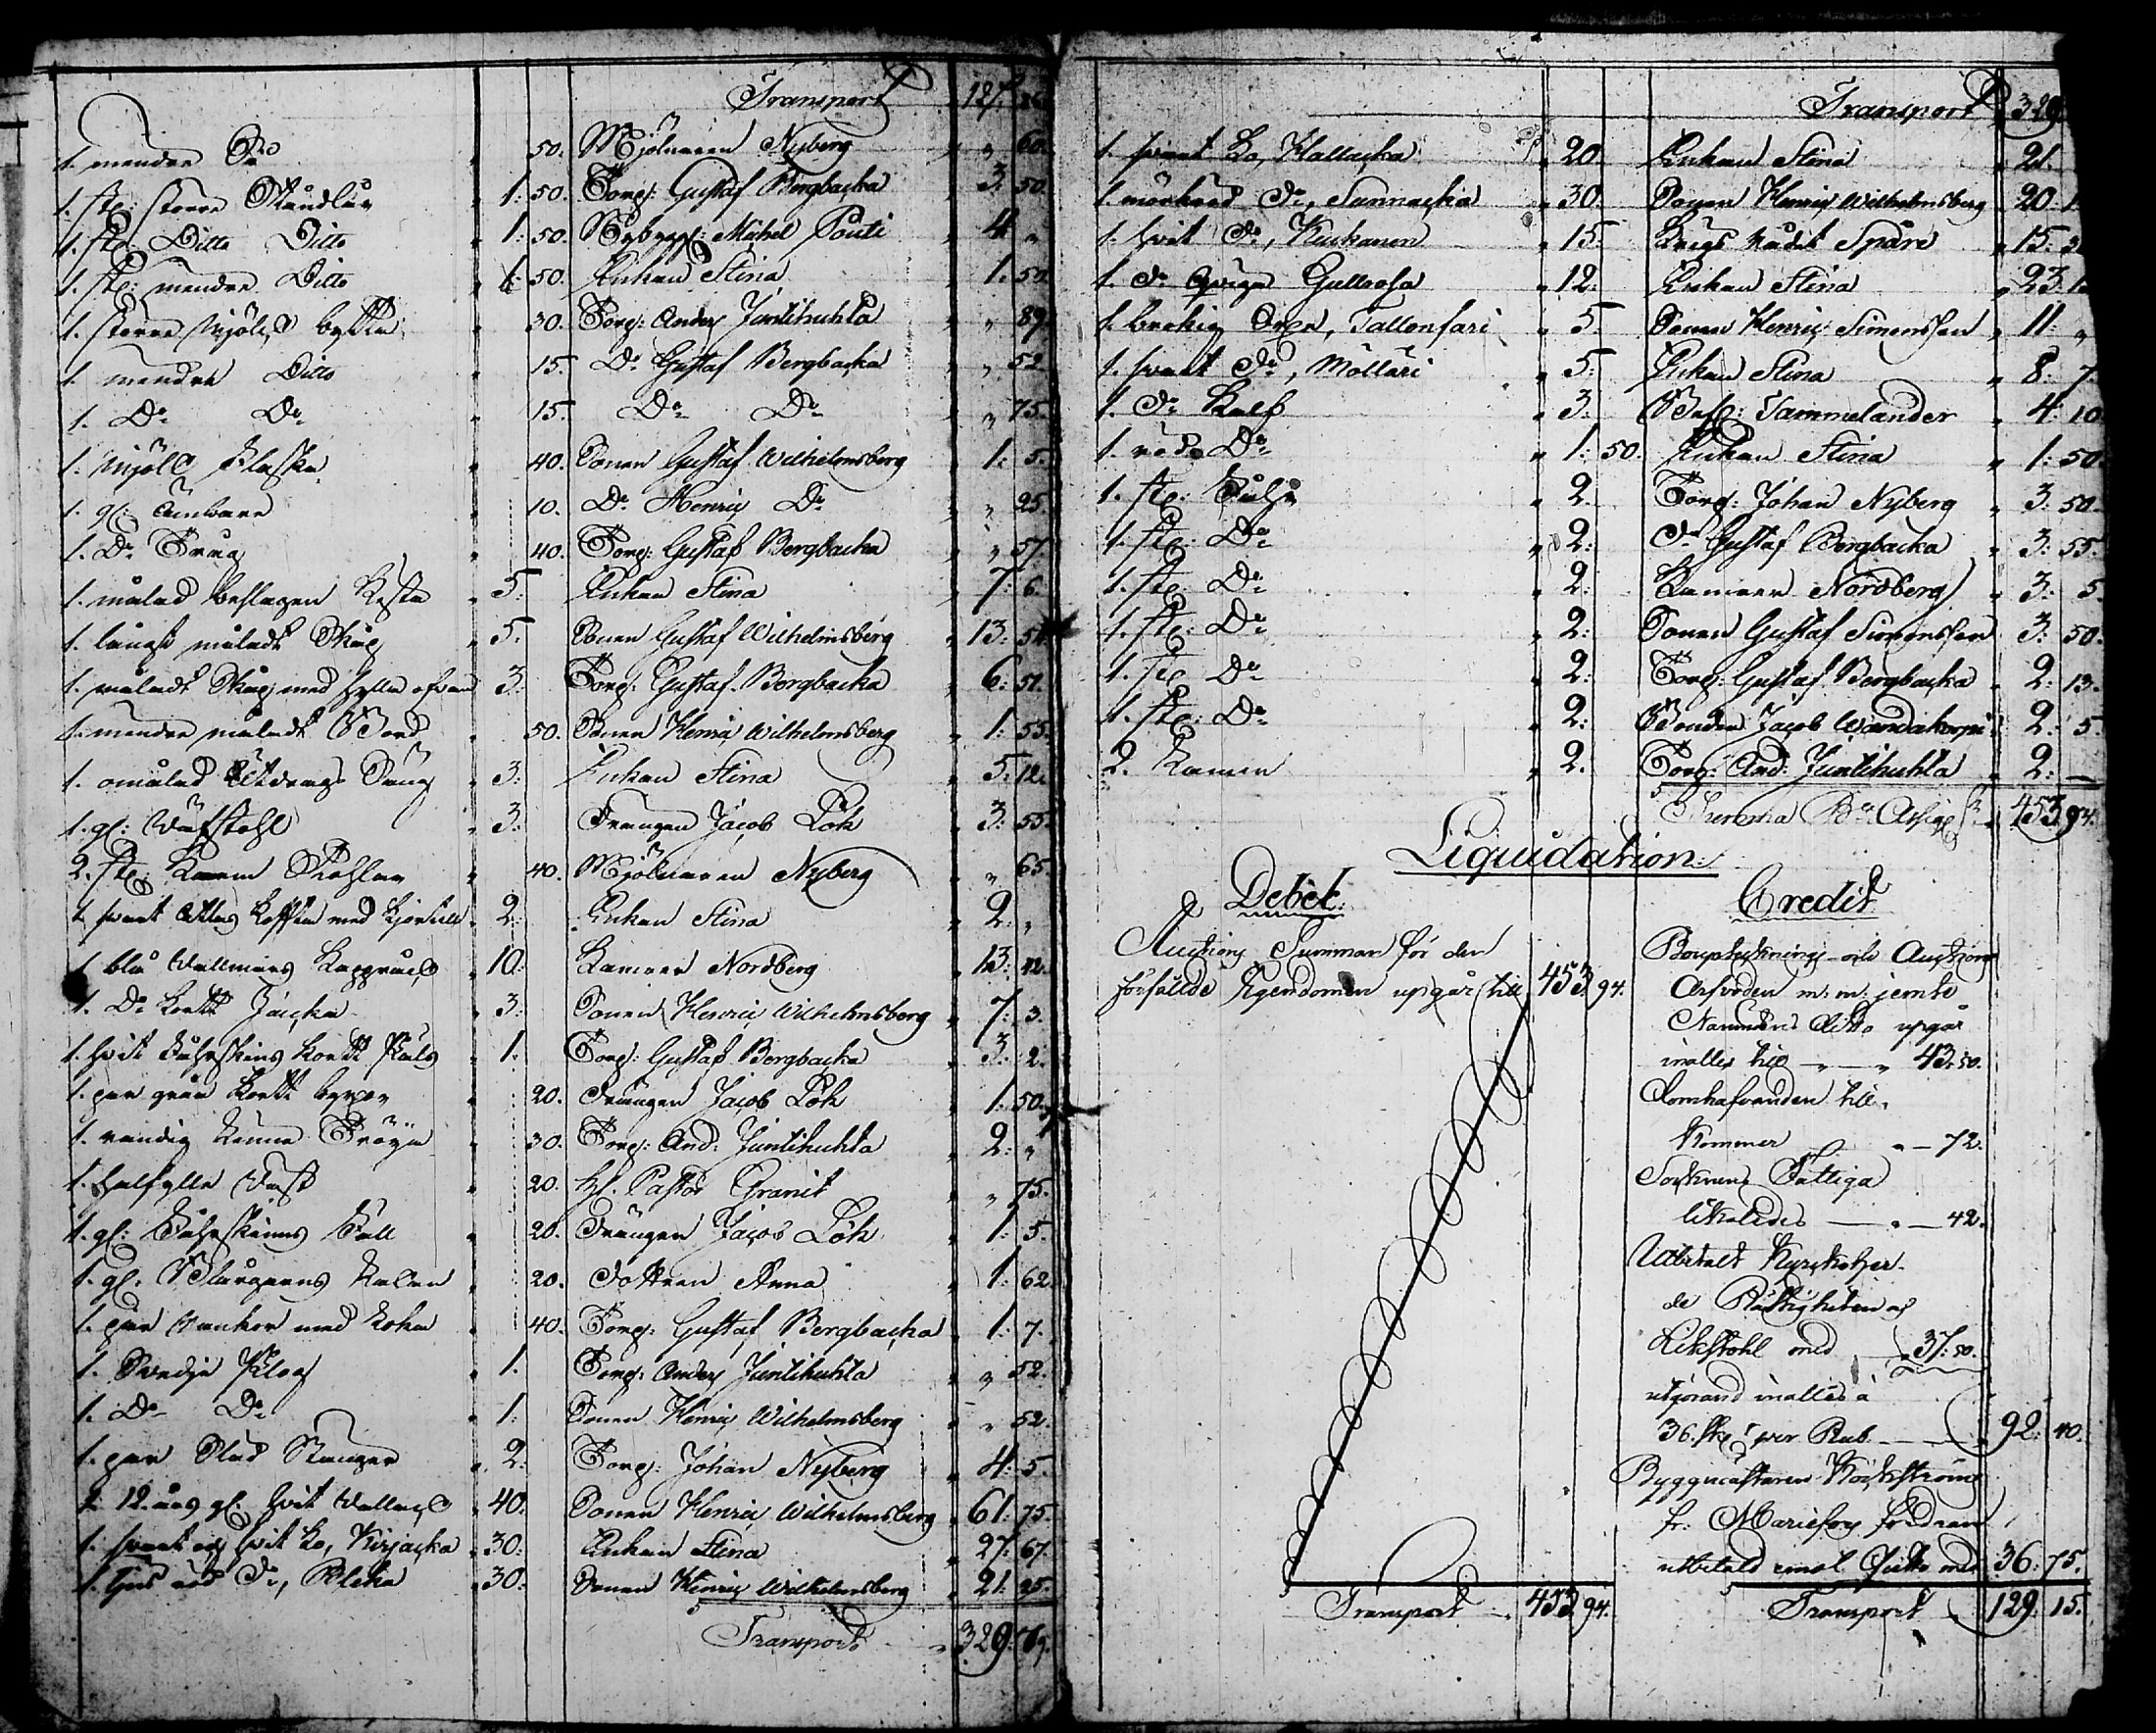 Transport 127.
1. mendre D:o 50. Mjölnaren Nyberg " 60.
1. st: större Ståndkar 1: 50. Torp: Gustaf Bergbacka 3: 50.
1. st: Ditto Ditto 1: 50. Nybygg: Michel Pouti 4. "
1. st: mendre Ditto 1: 50. Enkan Stina 1: 50.
1. större Mjölk bytta 30. Torp: Anders Juntikuhta " 89.
1. mendre Ditto 15. D:o Gustaf Bergbacka " 52
1. D:o D:o 15. D:o D:o " 75.
1. Mjölk Flaska 40. Sonen Gustaf Wilhelmsberg 1: 5.
1. gl: Ämbare 10. D:o Henric D:o " 25
1. D:o 40. Torp: Gustaf Bergbacka " 57.
1. målad beslagen Kista 5. Enkan Stina 7: 6.
1. måladt Skåp 5. Sonen Gustaf Wilhelmsberg 13: 51
1. måladt Skåp med hylla ofvan 3. Torp: Gustaf Bergbacka 6: 51.
1. mendre måladt Bord 50. Sonen Henric Wilhelmsberg 1: 55.
1. omålad Utdrags Säng 3: Enkan Stina 5: 12.
1. gl: Väfstohl 3: Drängen Jacob Lök 3: 55.
2. st: Karm Stohlar 40. Mjölnaren Nyberg " 65.
1. svart Atlas Kofta med Kjortell 2: Enkan Stina 2: "
1. blå Wallmars Kapprock 10: Kamrer Nordberg 13: 42.
1. D:o kort Jacka 3: Sonen Henric Wilhelmsberg 7: 3.
1. hvit Fåhrskins kort Päls 1. Torp: Gustaf Bergbacka 3: 2.
1. par grå korta byxor 20. Drängen Jacob Lök 1: 50.
1. randig Tröya 30. Torp: And: Juntikuhta 2: "
1. Halfylle Väst 20. H. Pastor Granit " 75.
1. gl: Fåhrskinns Fäll 20. Drängen Jacob Lök 1: 5.
1. gl. Blårgarns Lakan 20. Dottren Anna 1: 62.
1. par Vankor med 40. Torp: Gustaf Bergbacka 1: 7.
1. Svedje Plog 1. Torp: Anders Juntikuhta " 52.
1. D:o D:o 1: Sonen Henric Wilhelmsberg " 52.
1. par Stänger 2: Torp: Johan Nyberg 4: 5.
1. 12. års gl. hvit Wallack 40. Sonen Henric Wilhelmsberg 61: 75.
1. svart och hvit Ko, Kirjacka 30: Enkan Stina 27: 67.
1. ljus röd D:o, Bleka 30: Sonen Henric Wilhelmsberg 21: 25.
Transport 329: 69.
Transport 329
1. svart Ko, Kallacka 20. Enkan Stina 21.
1. mörkröd D:o, Sunnacka 30. Sonen Henric Wilhelmsberg 20:
1. hvit D:o, Kuckanen 15: Krigs Rådet Spåre 15:
1. D:o Qviga Gullrosa 12: Enkan Stina 23:
1. brokig Oxe, Tallensari 5: Sonen Henric Simonsson 11: "
1. svart D:o, Möllari 5: Enkan Stina 8: 7.
1. D:o Kalf 3: Sammelander 4: 10
1. röd D:o 1: 50. Enkan Stina 1: 50.
1. st: 2. Torp: Johan Nyberg 3: 50.
1. st: D:o 2: D:o Gustaf Bergbacka 3: 55.
1. st: D:o 2: Kamrer Nordberg 3: 5.
1. st: D:o 2: Sonen Gustaf Simonsson 3: 50.
1. st: D:o 2: Torp: Gustaf Bergbacka 2: 13.
1. st: D:o 2: Bonden Jacob Wandakorpi 2: 5.
2. 2. Torp: And: Juntikuhta 2: —
Summa B:co Assign: 453. 94.
Liquidation:
Debet: Credit
Auctions Summan för den
försålde Egendomen upgår till 453. 94.
Bouptecknings- och Auctions
Arfvoden m: m: jemte
Nämndens ditto upgår
inalles till — 43: 50.
Domhafvanden till
kommer — 72.
Socknens Fattiga
likaledes — 42.
Utbetalt Kyrkoher-
de Rättigheten af
Likstohl med 37: 50.
utgörand inalles à
36. sk: per Rub. — 92. 40.
Byggmästaren Höckström
fr: Mariefors fordran
utbetald emot Qvitto med 36: 75.
Transport 453. 94. Transport 129. 15.